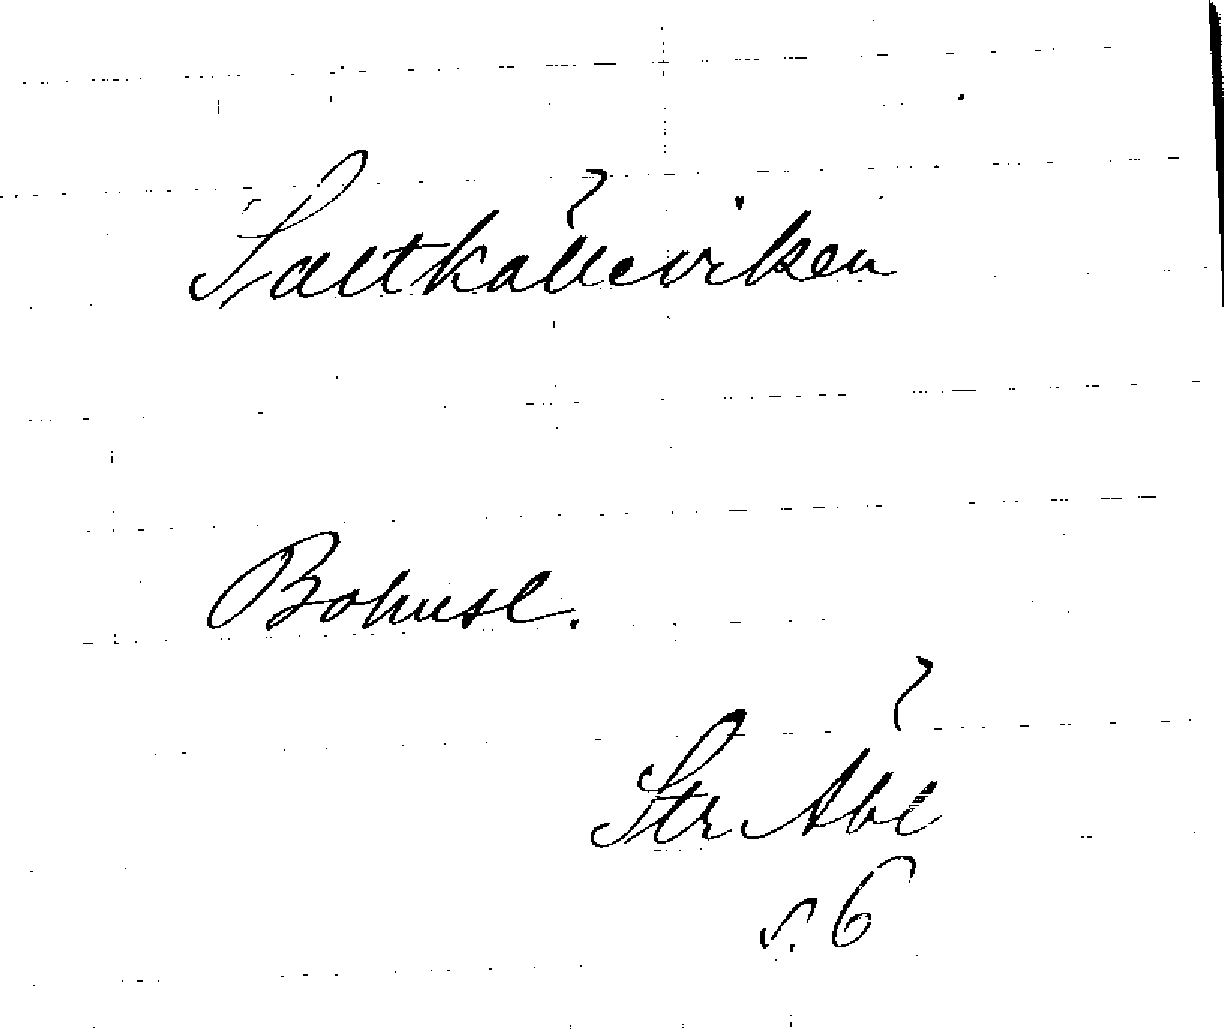 Saltkälleviken
Bohusl.
Str Äbl
s. 6